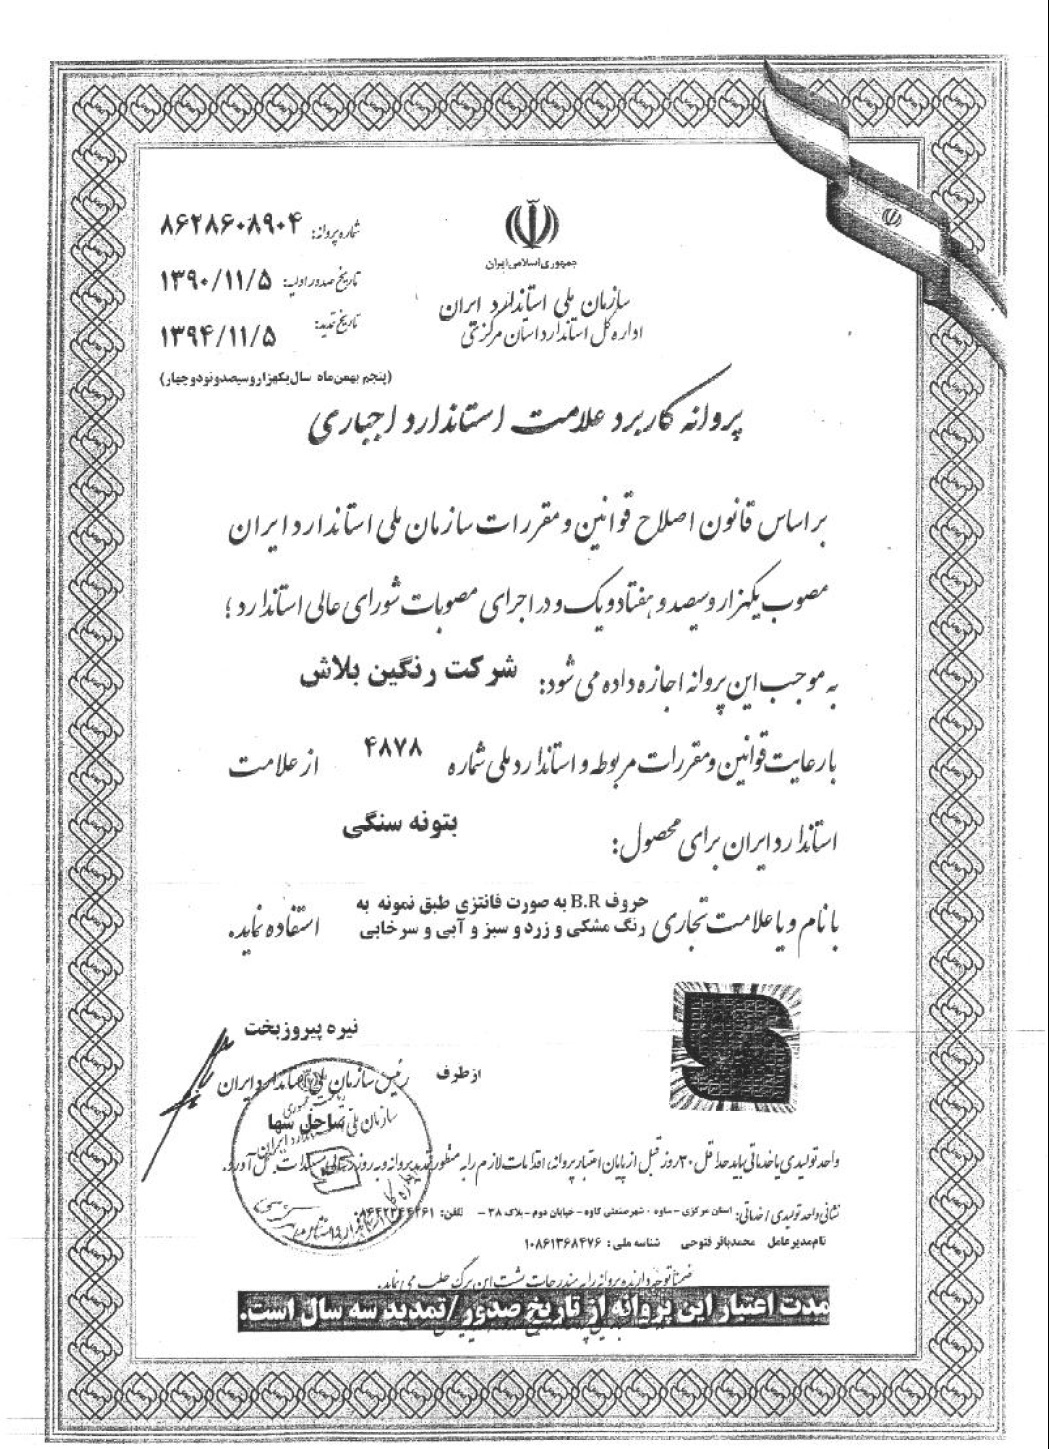 جمهوری اسلامی ایران
سازمان ملی استاندارد ایران
اداره کل استاندارد استان مرکزی
شماره پروانه: ۸۶۲۸۶۰۸۹۰۴
تاریخ صدور اولیه: ۱۳۹۰/۱۱/۵
تاریخ تمدید: ۱۳۹۴/۱۱/۵
(پنجم بهمن ماه سال یکهزار و سیصد و نود و چهار)
پروانه کاربرد علامت استاندارد اجباری
بر اساس قانون اصلاح قوانین و مقررات سازمان ملی استاندارد ایران
مصوب یکهزار و سیصد و هفتاد و یک و در اجرای مصوبات شورای عالی استاندارد؛
به موجب این پروانه اجازه داده می شود: شرکت رنگین بلاش
با رعایت قوانین و مقررات مربوطه و استاندارد ملی شماره ۴۸۷۸ از علامت
استاندارد ایران برای محصول: بتونه سنگی
با نام و یا علامت تجاری حروف B.R به صورت فانتزی طبق نمونه به
رنگ مشکی و زرد و سبز و آبی و سرخابی استفاده نماید.
نیره پیروزبخت
از طرف رئیس سازمان ملی استاندارد ایران
ساحل سها
واحد تولیدی یا خدماتی باید حداقل ۳۰ روز قبل از پایان اعتبار پروانه، اقدامات لازم را به منظور تمدید پروانه و به روز رسانی مستندات بعمل آورد.
نشانی واحد تولیدی / خدماتی: استان مرکزی - ساوه - شهر صنعتی کاوه - خیابان دوم - پلاک ۳۸ - تلفن:
نام مدیر عامل محمدباقر فتوحی شناسه ملی: ۱۰۸۶۱۳۶۸۴۷۶
ضمنا توجه دارنده پروانه را به مندرجات پشت این برگ جلب می نماید.
مدت اعتبار این پروانه از تاریخ صدور/تمدید سه سال است.